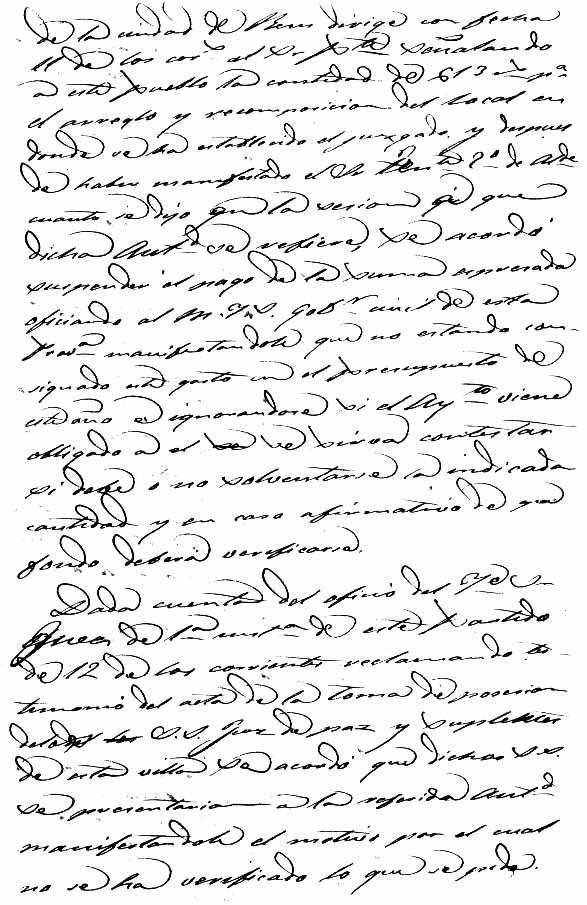 de la ciudad de Reus dirige con fecha
11 de los cor.s al Sr P.te señalando
a este pueblo la cantidad de 613 r.s p.a
el arreglo y recomposicion del local en
donde se ha establecido el juzgado, y despues
de haber manifestado el Sr Ten.te 2.o de Alde
cuanto se dijo en la sesion que
dicha Aut.d se refiere, se acordó
suspender el pago de la suma espresada
oficiando al M. Y. S. Gob.r civil de esta
Prov.a manifestandole que no estando con-
signado este gasto en el presupuesto de
este año e ignorandose si el Ay.to viene
obligado a el se sirva contestar
si debe ó no solventarse la indicada
cantidad y en caso afirmativo de que
fondo deberá verificarse.
Dada cuenta del oficio del Sr
Juez de 1.a inst.a de este Partido
de 12 de los corrientes reclamando tes-
timonio del acta de la toma de posesion
de los S.S. Juez de paz y suplentes
de esta villa se acordó que dichos S.S.
se presentarian a la referida Aut.d
manifestandole el motivo por el cual
no se ha verificado lo que se pide.